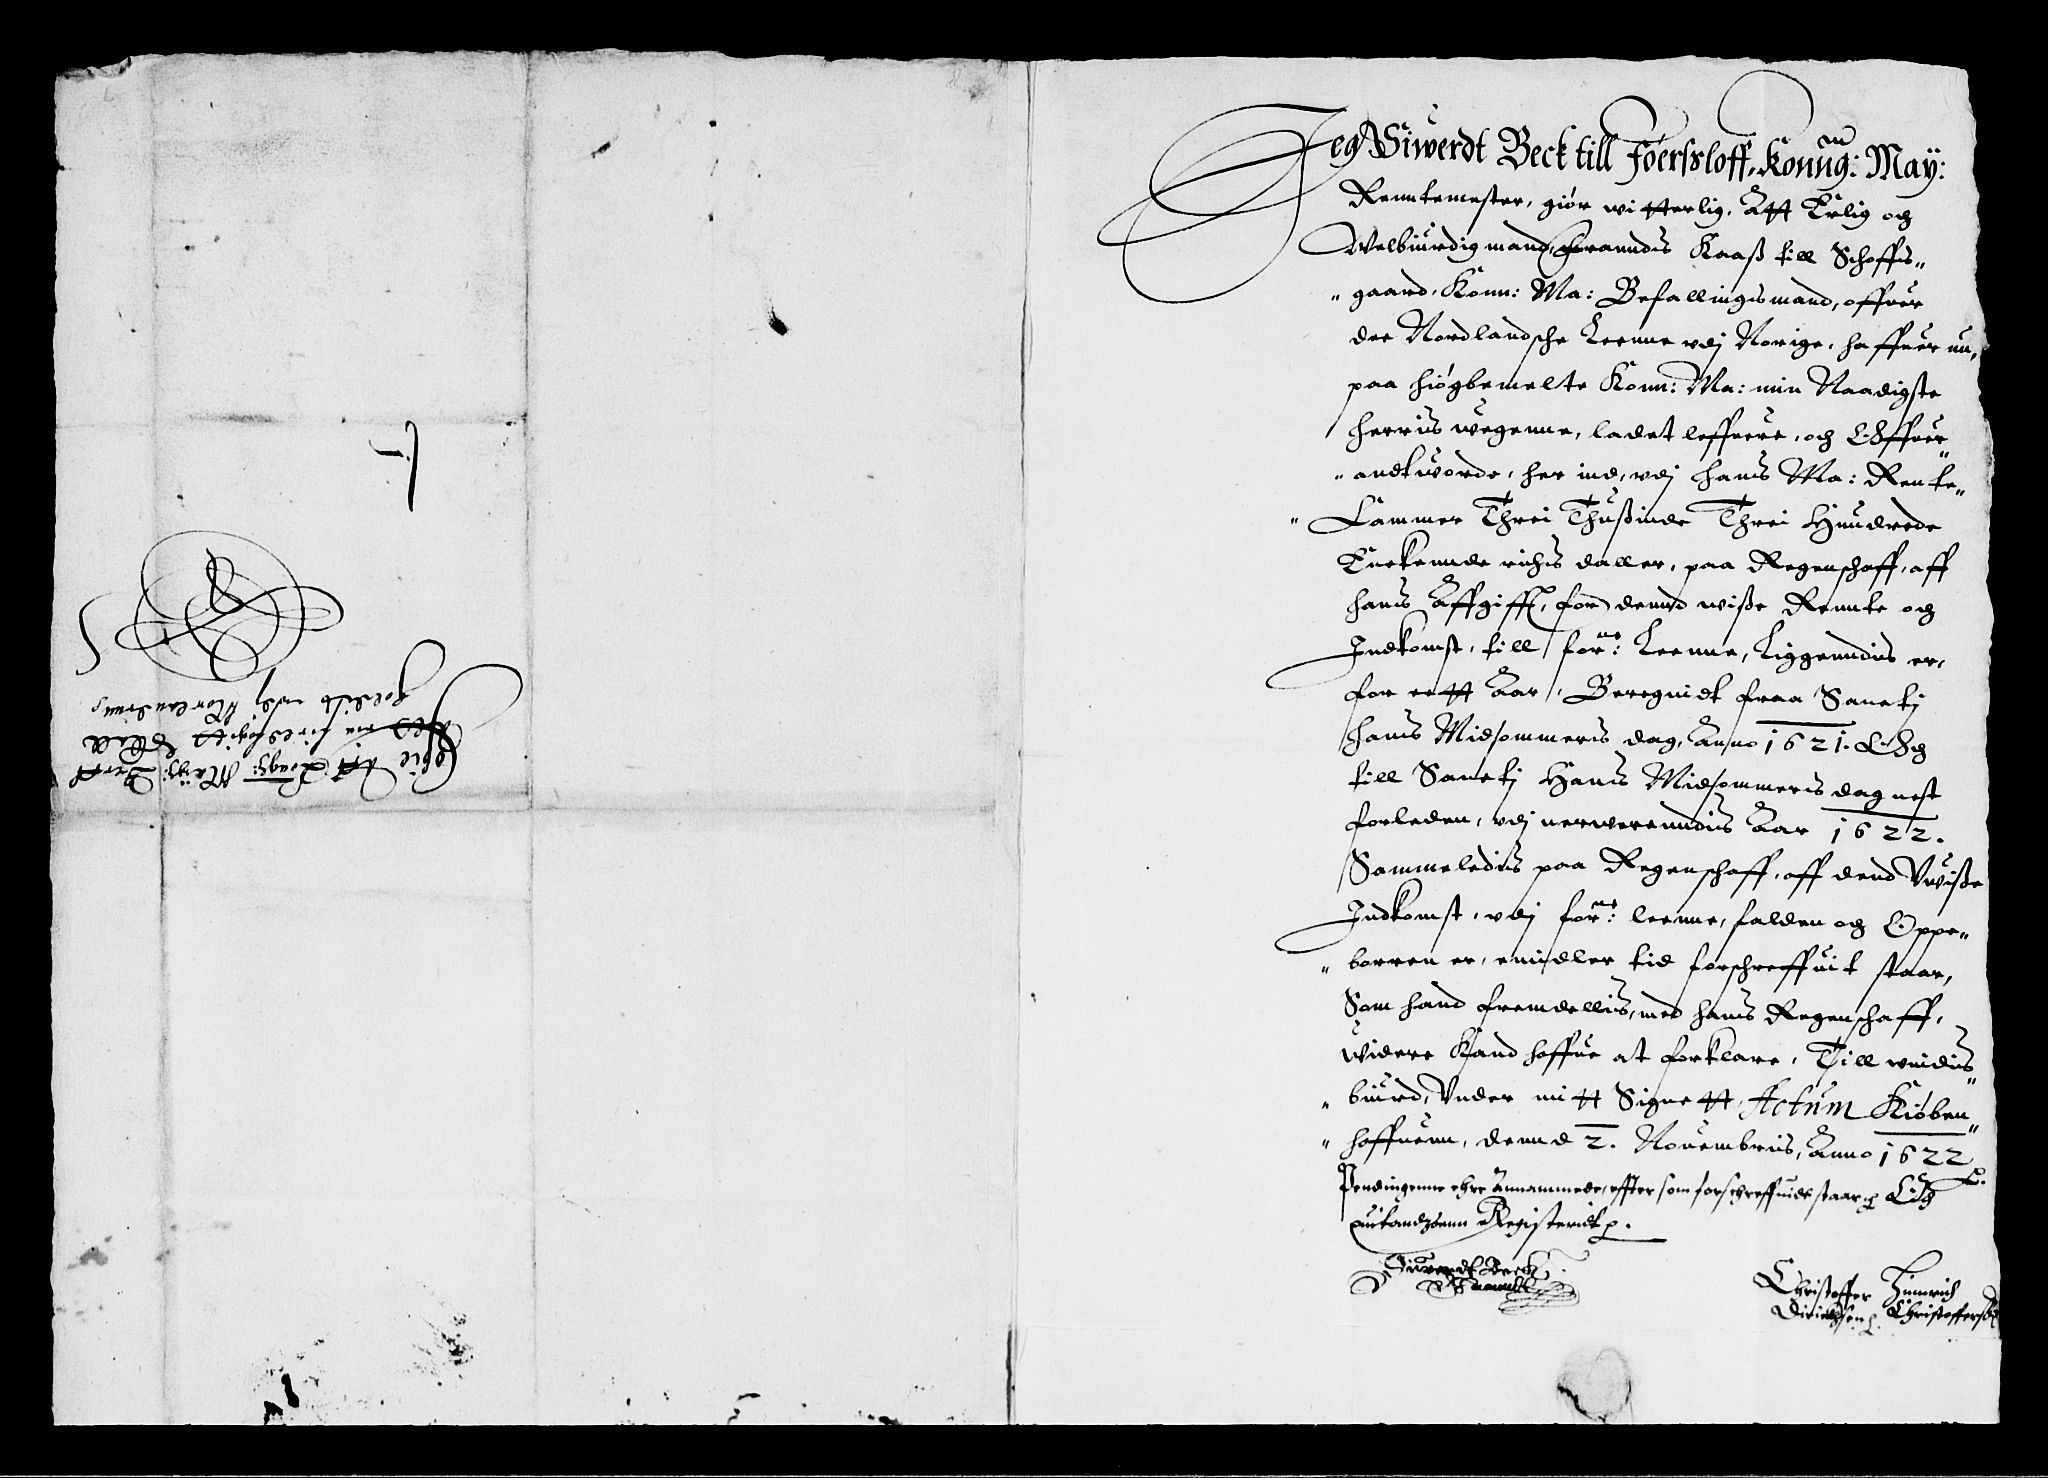 Jeg Siwerdt Beck till Föerssloff, Konng: May:
Renntemester, giör witterlig, Att Erlig och
Welbiurdig mand, Franndis Kaaß till Schoffis„
„ gaard, Konn: Ma: Befallingismand, offuer
dee Nordlandsche Leenne vdj Norige, haffuer nu,
paa hiögbemelte Konn: Ma: min Naadigste
herris wegenne, ladet leffuere, och Offuer„
„ andtworde, her ind, vdj hans Ma: Rente„
„ Cammer Threi Thußinde Threi Hundrede
Enckennde richs daller, paa Regenschaff, aff
hans Affgifft, for dennd wiße Rennte och
Indkomst, till forne: Leenne, Liggenndis er,
for eett Aar, Beregnidt fraa Sanctj
hans Midsommers dag, Anno 1621. Och
till Sanctj Hans Midsommers dag nest
forleden, vdj nerwerenndis Aar 1622.
Sammeledis paa Regenschaff, aff dend Vwiße
Indkomst, vdj forne: leenne, falden och Oppe„
„ borren er, emidler tid forschreffuit staar,
Som hand fremdellis, med hans Regenschaff,
widere Kand haffue at forklare, Till widnis„
„ biurd, Vnder mitt Signett, Actum Kiöben„
„ haffuenn, dennd 2. Nouembris, Anno 1622
Pendingenne ehre Annammede, effter som forschreffuidt staar, Och
quitandzenn Registeridt.
Siuerdt Beck
Christoffer Hinnrich
Dirichsen Christoffersen
Kongs: Mayts: